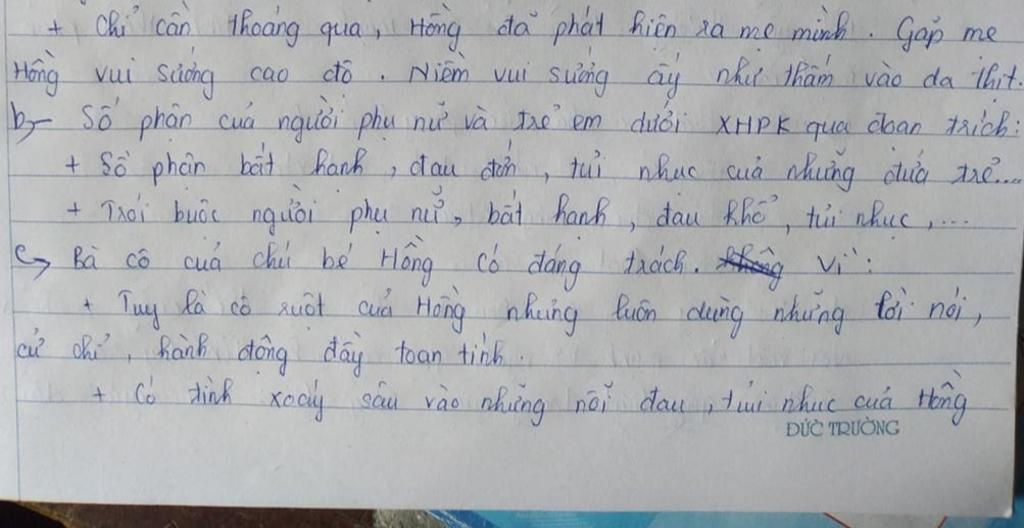 + Chỉ cần thoáng qua, Hồng đã phát hiện ra mẹ mình. Gặp mẹ
Hồng vui sướng cao độ. Niềm vui sướng ấy như thấm vào da thịt.
b, Số phận của người phụ nữ và trẻ em dưới XHPK qua đoạn trích:
+ Số phận bất hạnh, đau đớn, tủi nhục của những đứa trẻ...
+ Trói buộc người phụ nữ, bất hạnh, đau khổ, tủi nhục,...
c, Bà cô của chú bé Hồng có đáng trách. không Vì:
+ Tuy là cô ruột của Hồng nhưng luôn dùng những lời nói,
cử chỉ, hành động đầy toan tính.
+ Cố tình xoáy sâu vào những nỗi đau, tủi nhục của Hồng
ĐỨC TRƯỜNG